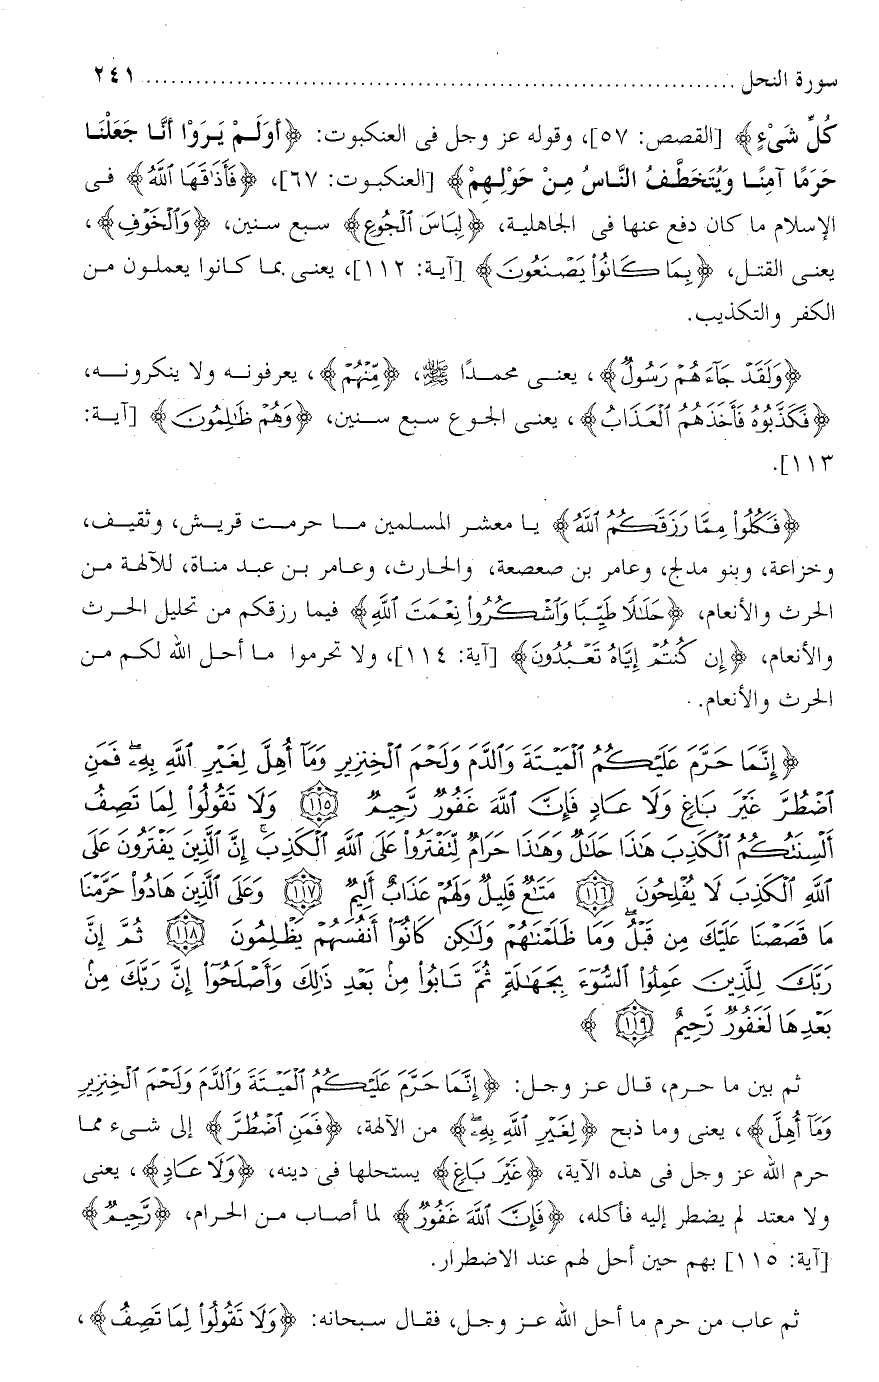 سورة النحل ........................................................................ ٢٤١
كُلِّ شَىْءٍ﴾ [القصص: ٥٧]، وقوله عز وجل فى العنكبوت: ﴿أوَلَمْ يَرَوْا أنَّا جَعَلْنَا
حَرَمًا آمِنًا وَيُتَخَطَّفُ النَّاسُ مِنْ حَوْلِهِمْ﴾ [العنكبوت: ٦٧]، ﴿فَأَذَٰقَهَا ٱللَّهُ﴾ فى
الإسلام ما كان دفع عنها فى الجاهلية، ﴿لِبَاسَ ٱلْجُوعِ﴾ سبع سنين، ﴿وَٱلْخَوْفِ﴾،
يعنى القتل، ﴿بِمَا كَانُوا۟ يَصْنَعُونَ﴾ [آية: ١١٢]، يعنى بما كانوا يعملون من
الكفر والتكذيب.
﴿وَلَقَدْ جَآءَهُمْ رَسُولٌ﴾، يعنى محمدًا ﷺ، ﴿مِّنْهُمْ﴾، يعرفونه ولا ينكرونه،
﴿فَكَذَّبُوهُ فَأَخَذَهُمُ ٱلْعَذَابُ﴾، يعنى الجوع سبع سنين، ﴿وَهُمْ ظَٰلِمُونَ﴾ [آية:
١١٣].
﴿فَكُلُوا۟ مِمَّا رَزَقَكُمُ ٱللَّهُ﴾ يا معشر المسلمين ما حرمت قريش، وثقيف،
وخزاعة، وبنو مدلج، وعامر بن صعصعة، والحارث، وعامر بن عبد مناة، للآلهة من
الحرث والأنعام، ﴿حَلَٰلًا طَيِّبًا وَٱشْكُرُوا۟ نِعْمَتَ ٱللَّهِ﴾ فيما رزقكم من تحليل الحرث
والأنعام، ﴿إِن كُنتُمْ إِيَّاهُ تَعْبُدُونَ﴾ [آية: ١١٤]، ولا تحرموا ما أحل الله لكم من
الحرث والأنعام.
﴿إِنَّمَا حَرَّمَ عَلَيْكُمُ ٱلْمَيْتَةَ وَٱلدَّمَ وَلَحْمَ ٱلْخِنزِيرِ وَمَآ أُهِلَّ لِغَيْرِ ٱللَّهِ بِهِۦۖ فَمَنِ
ٱضْطُرَّ غَيْرَ بَاغٍ وَلَا عَادٍ فَإِنَّ ٱللَّهَ غَفُورٌ رَّحِيمٌ ١١٥ وَلَا تَقُولُوا۟ لِمَا تَصِفُ
أَلْسِنَتُكُمُ ٱلْكَذِبَ هَٰذَا حَلَٰلٌ وَهَٰذَا حَرَامٌ لِّتَفْتَرُوا۟ عَلَى ٱللَّهِ ٱلْكَذِبَۚ إِنَّ ٱلَّذِينَ يَفْتَرُونَ عَلَى
ٱللَّهِ ٱلْكَذِبَ لَا يُفْلِحُونَ ١١٦ مَتَٰعٌ قَلِيلٌ وَلَهُمْ عَذَابٌ أَلِيمٌ ١١٧ وَعَلَى ٱلَّذِينَ هَادُوا۟ حَرَّمْنَا
مَا قَصَصْنَا عَلَيْكَ مِن قَبْلُۖ وَمَا ظَلَمْنَٰهُمْ وَلَٰكِن كَانُوٓا۟ أَنفُسَهُمْ يَظْلِمُونَ ١١٨ ثُمَّ إِنَّ
رَبَّكَ لِلَّذِينَ عَمِلُوا۟ ٱلسُّوٓءَ بِجَهَٰلَةٍ ثُمَّ تَابُوا۟ مِنۢ بَعْدِ ذَٰلِكَ وَأَصْلَحُوٓا۟ إِنَّ رَبَّكَ مِنۢ
بَعْدِهَا لَغَفُورٌ رَّحِيمٌ ١١٩ ﴾
ثم بين ما حرم، قال عز وجل: ﴿إِنَّمَا حَرَّمَ عَلَيْكُمُ ٱلْمَيْتَةَ وَٱلدَّمَ وَلَحْمَ ٱلْخِنزِيرِ
وَمَآ أُهِلَّ﴾، يعنى وما ذبح ﴿لِغَيْرِ ٱللَّهِ بِهِۦۖ﴾ من الآلهة، ﴿فَمَنِ ٱضْطُرَّ﴾ إلى شىء مما
حرم الله عز وجل فى هذه الآية، ﴿غَيْرَ بَاغٍ﴾ يستحلها فى دينه، ﴿وَلَا عَادٍ﴾، يعنى
ولا معتد لم يضطر إليه فأكله، ﴿فَإِنَّ ٱللَّهَ غَفُورٌ﴾ لما أصاب من الحرام، ﴿رَّحِيمٌ﴾
[آية: ١١٥] بهم حين أحل لهم عند الاضطرار.
ثم عاب من حرم ما أحل الله عز وجل، فقال سبحانه: ﴿وَلَا تَقُولُوا۟ لِمَا تَصِفُ﴾،